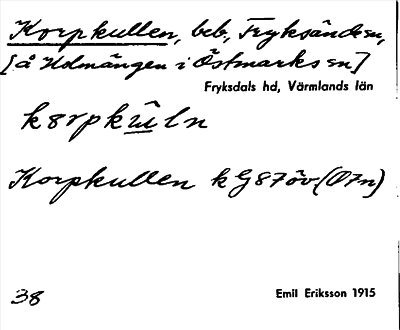 Korpkullen, beb., Fryksände sn,
[å Holmängen i Östmarks sn]
Fryksdals hd, Värmlands län
k8rpkuln
Korpkullen k G87öv (Ö7n)
38 Emil Eriksson 1915